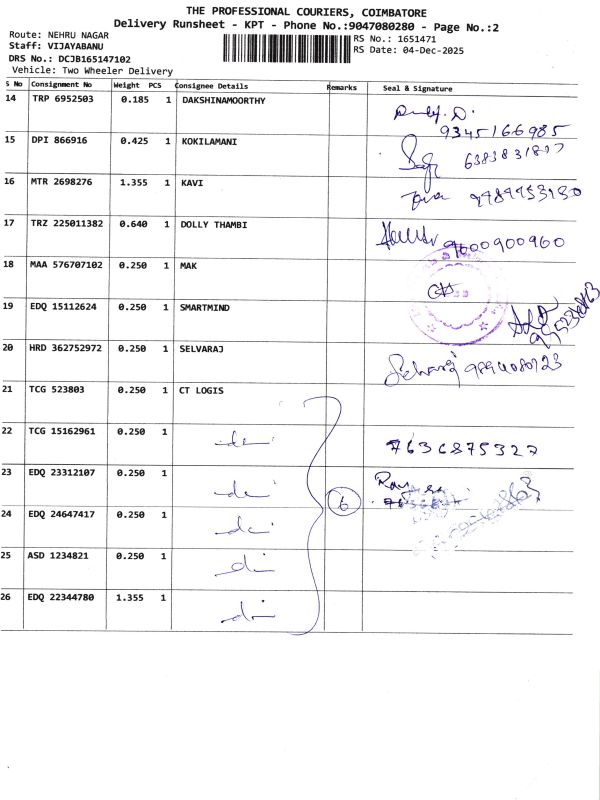 THE PROFESSIONAL COURIERS, COIMBATORE
Delivery Runsheet - KPT - Phone No.:9047080280 - Page No.:2
Route: NEHRU NAGAR
Staff: VIJAYABANU
DRS No.: DCJB165147102
Vehicle: Two Wheeler Delivery
RS No.: 1651471
RS Date: 04-Dec-2025
S No Consignment No Weight PCS Consignee Details Remarks Seal & Signature
14 TRP 6952503 0.185 1 DAKSHINAMOORTHY
9345166985
15 DPI 866916 0.425 1 KOKILAMANI
16 MTR 2698276 1.355 1 KAVI
17 TRZ 225011382 0.640 1 DOLLY THAMBI
9600900960
18 MAA 576707102 0.250 1 MAK
19 EDQ 15112624 0.250 1 SMARTMIND
20 HRD 362752972 0.250 1 SELVARAJ
21 TCG 523803 0.250 1 CT LOGIS
22 TCG 15162961 0.250 1
7636875327
23 EDQ 23312107 0.250 1
6
24 EDQ 24647417 0.250 1
25 ASD 1234821 0.250 1
26 EDQ 22344780 1.355 1